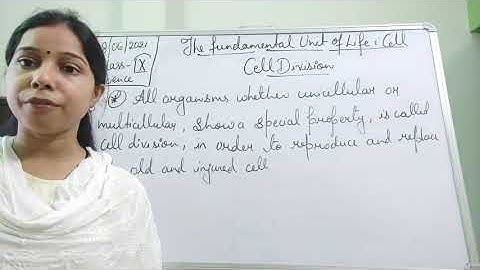 /06/2021 The fundamental Unit of Life : Cell
lass - IX Cell Division
ence
* All organisms whether unicellular or
multicellular, show a special property, is called
cell division, in order to reproduce and replace
old and injured cell